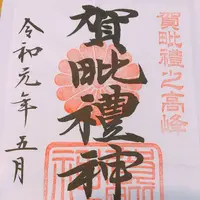 賀毗禮之高峰
賀毗禮神
令和元年五月